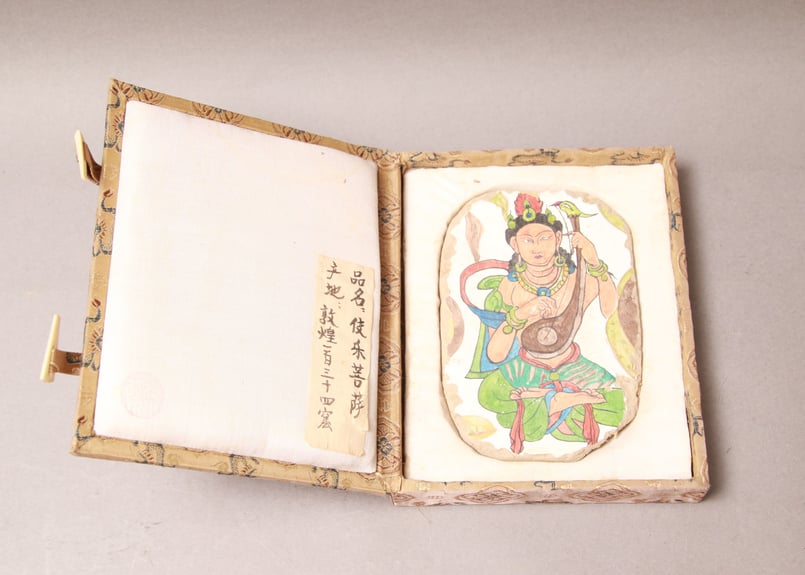 品名：伎乐菩萨
产地：敦煌一百三十四窟